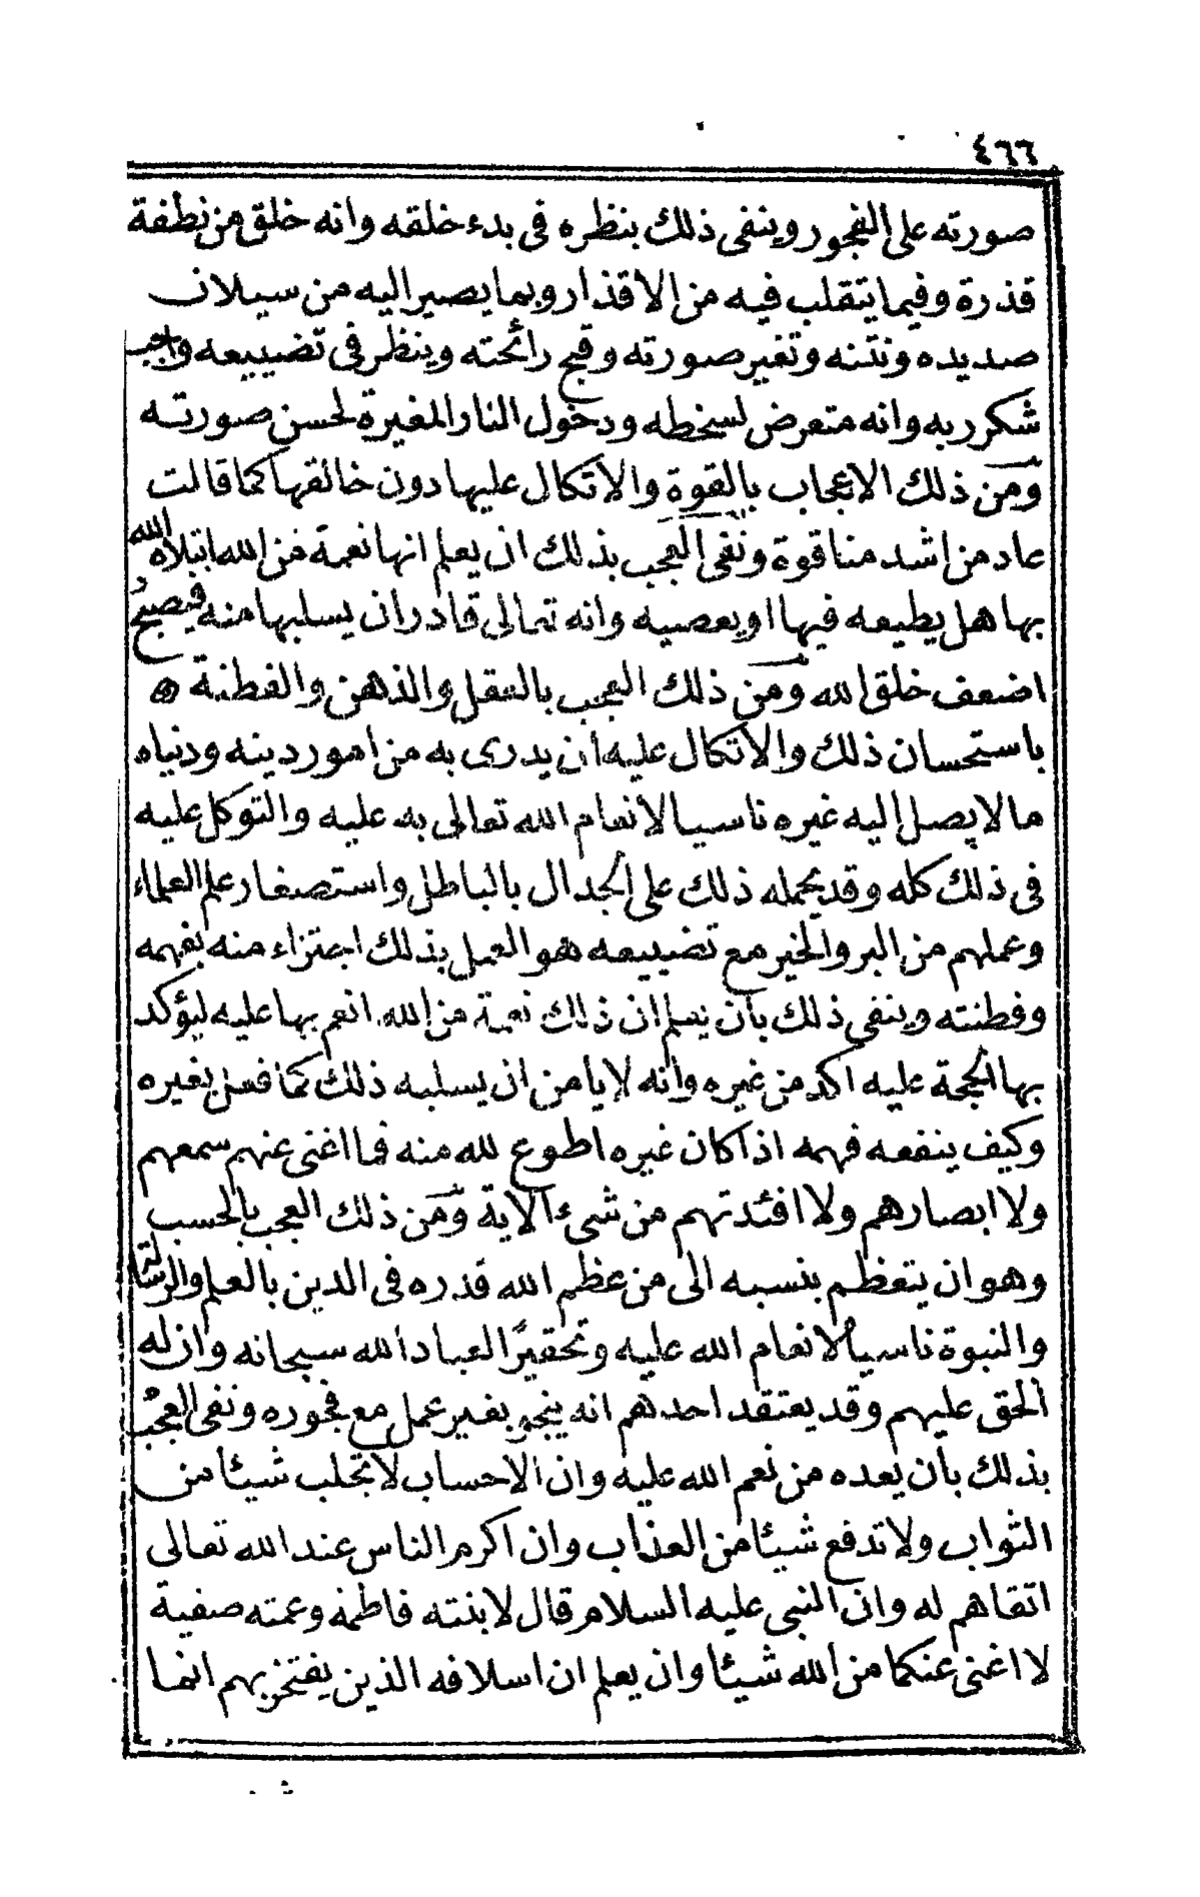 ٤٦٦
صورته على الفجور وينفى ذلك بنظره فى بدء خلقه وانه خلق من نطفة
قذرة وفيما يتقلب فيه من الاقذار وبما يصير اليه من سيلان
صديده ونتنه وتغير صورته وقبح رائحته وينظر فى تضييعه واجب
شكر ربه وانه متعرض لسخطه ودخول النار المغيرة لحسن صورته
ومن ذلك الاعجاب بالقوة والاتكال عليها دون خالقها كما قالت
عاد من اشد منا قوة ونفى العجب بذلك ان يعلم انها نعمة من الله ابتلاه الله
بها هل يطيعه فيها او يعصيه وانه تعالى قادر ان يسلبها منه فيصبح
اضعف خلق الله ومن ذلك العجب بالعقل والذهن والفطنة ه
باستحسان ذلك والاتكال عليه ان يدرى به من امور دينه ودنياه
ما لا يصل اليه غيره ناسيا لانعام الله تعالى به عليه والتوكل عليه
فى ذلك كله وقد يحمله ذلك على الجدال بالباطل واستصغار علم العلماء
وعملهم من البر والخير مع تضييعه هو العمل بذلك اجتزاء منه بفهمه
وفطنته وينفى ذلك بأن يعلم ان ذلك نعمة من الله انعم بها عليه ليؤكد
بها الحجة عليه اكد من غيره وانه لا يامن ان يسلبه ذلك كما فعل بغيره
وكيف ينفعه فهمه اذا كان غيره اطوع لله منه فما اغنى عنهم سمعهم
ولا ابصارهم ولا افئدتهم من شىء الآية ومن ذلك العجب بالحسب
وهو ان يتعظم بنسبه الى من عظم الله قدره فى الدين بالعلم والرسالة
والنبوة ناسيا لانعام الله عليه وتحقيرًا لعباد الله سبحانه وان له
الحق عليهم وقد يعتقد احدهم انه ينجو بغير عمل مع فجوره ونفى العجب
بذلك بأن يعده من نعم الله عليه وان الاحساب لا تجلب شيئا من
الثواب ولا تدفع شيئا من العذاب وان اكرم الناس عند الله تعالى
اتقاهم له وان النبى عليه السلام قال لابنته فاطمة وعمته صفية
لا اغنى عنكما من الله شيئا وان يعلم ان اسلافه الذين يفتخر بهم انما